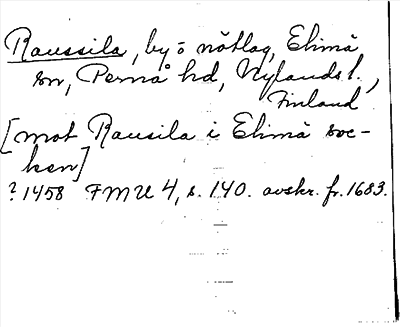 Raussila, by o nötlag, Elimä
sn, Pernå hd, Nylands l.,
Finland
[mot Rausila i Elimä soc-
ken]
? 1458 FMU 4, s. 140. avskr. fr. 1683.